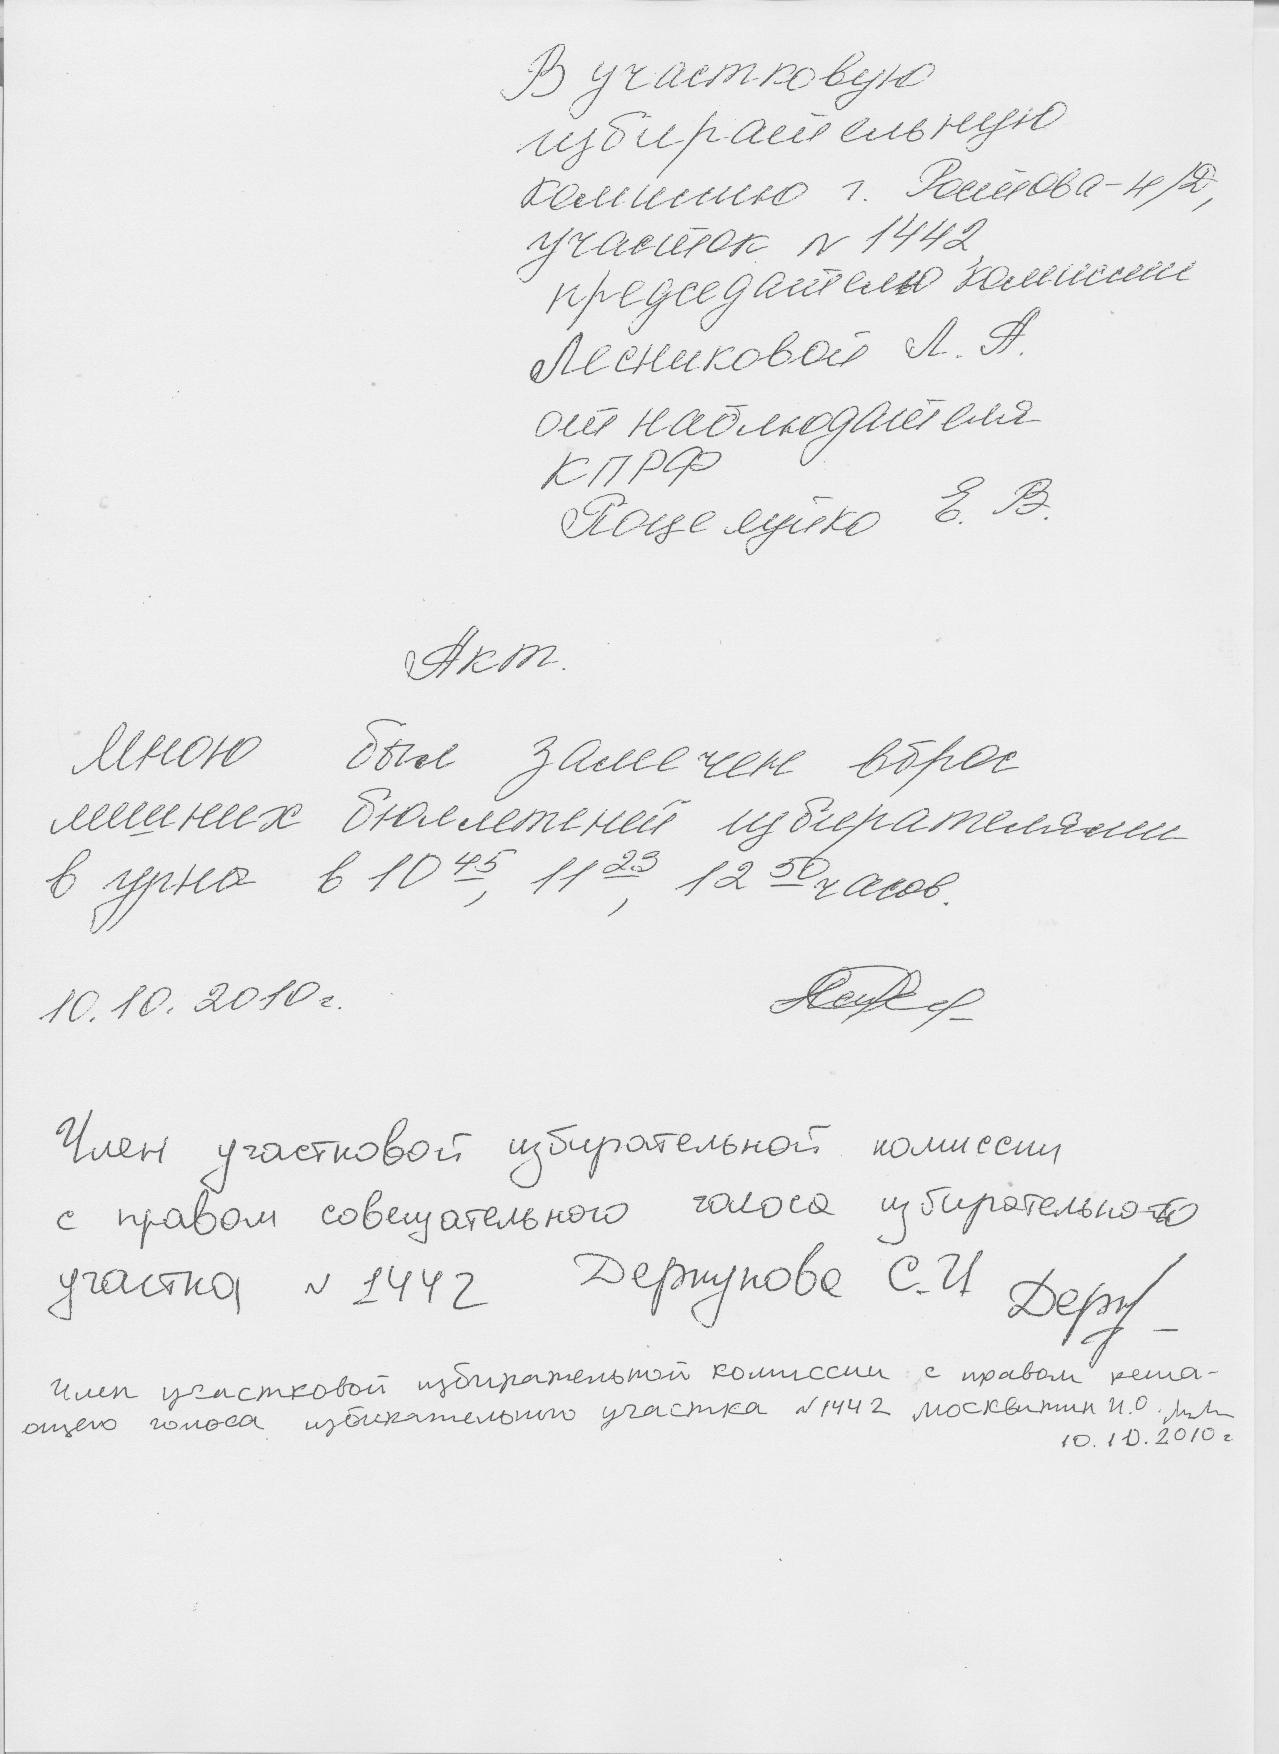 В участковую
избирательную
комиссию г. Ростова-н/Д,
участок N 1442
председателю комиссии
Лесниковой Л. А.
от наблюдателя
КПРФ
Поцелуйко Е. В.
Акт.
Мною был замечен вброс
лишних бюллетеней избирателями
в урна в 10 45, 11 23, 12 50 часов.
10.10.2010г.
Член участковой избирательной комиссии
с правом совещательного голоса избирательного
участка N 1442 Деркунова С.И
Член участковой избирательной комиссии с правом реша-
ющего голоса избирательного участка N 1442 Москвитин И.О.
10.10.2010г